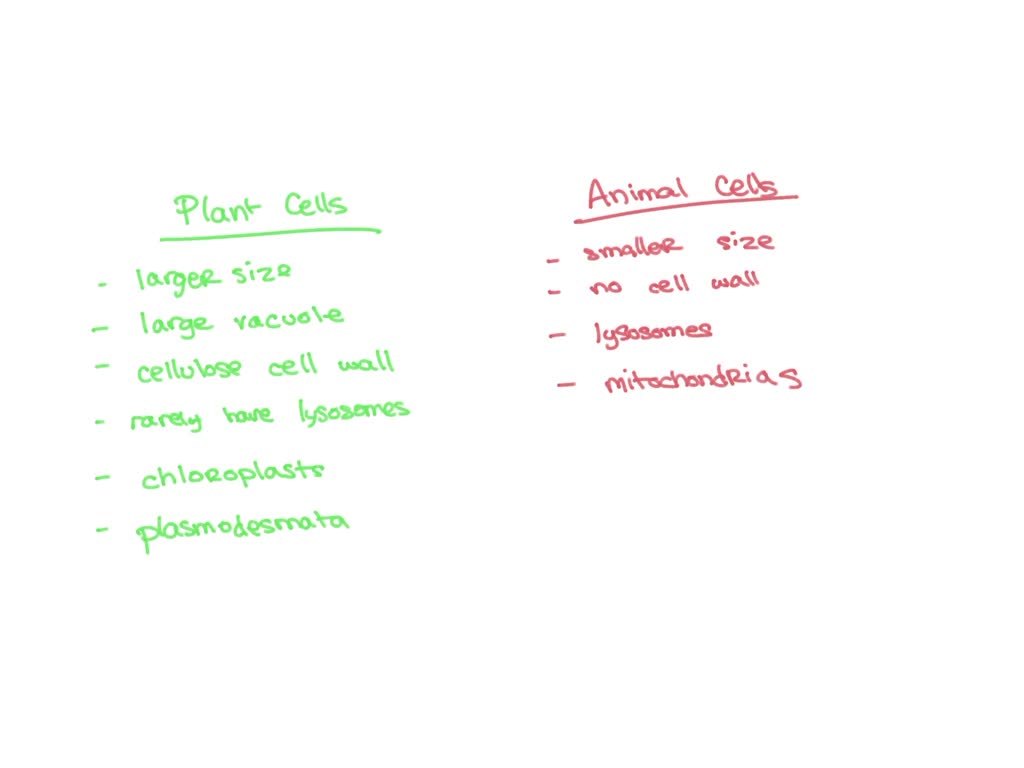 Plant Cells
- larger size
- large vacuole
- cellulose cell wall
- rarely have lysosomes
- chloroplasts
- plasmodesmata
Animal Cells
- smaller size
- no cell wall
- lysosomes
- mitochondrias